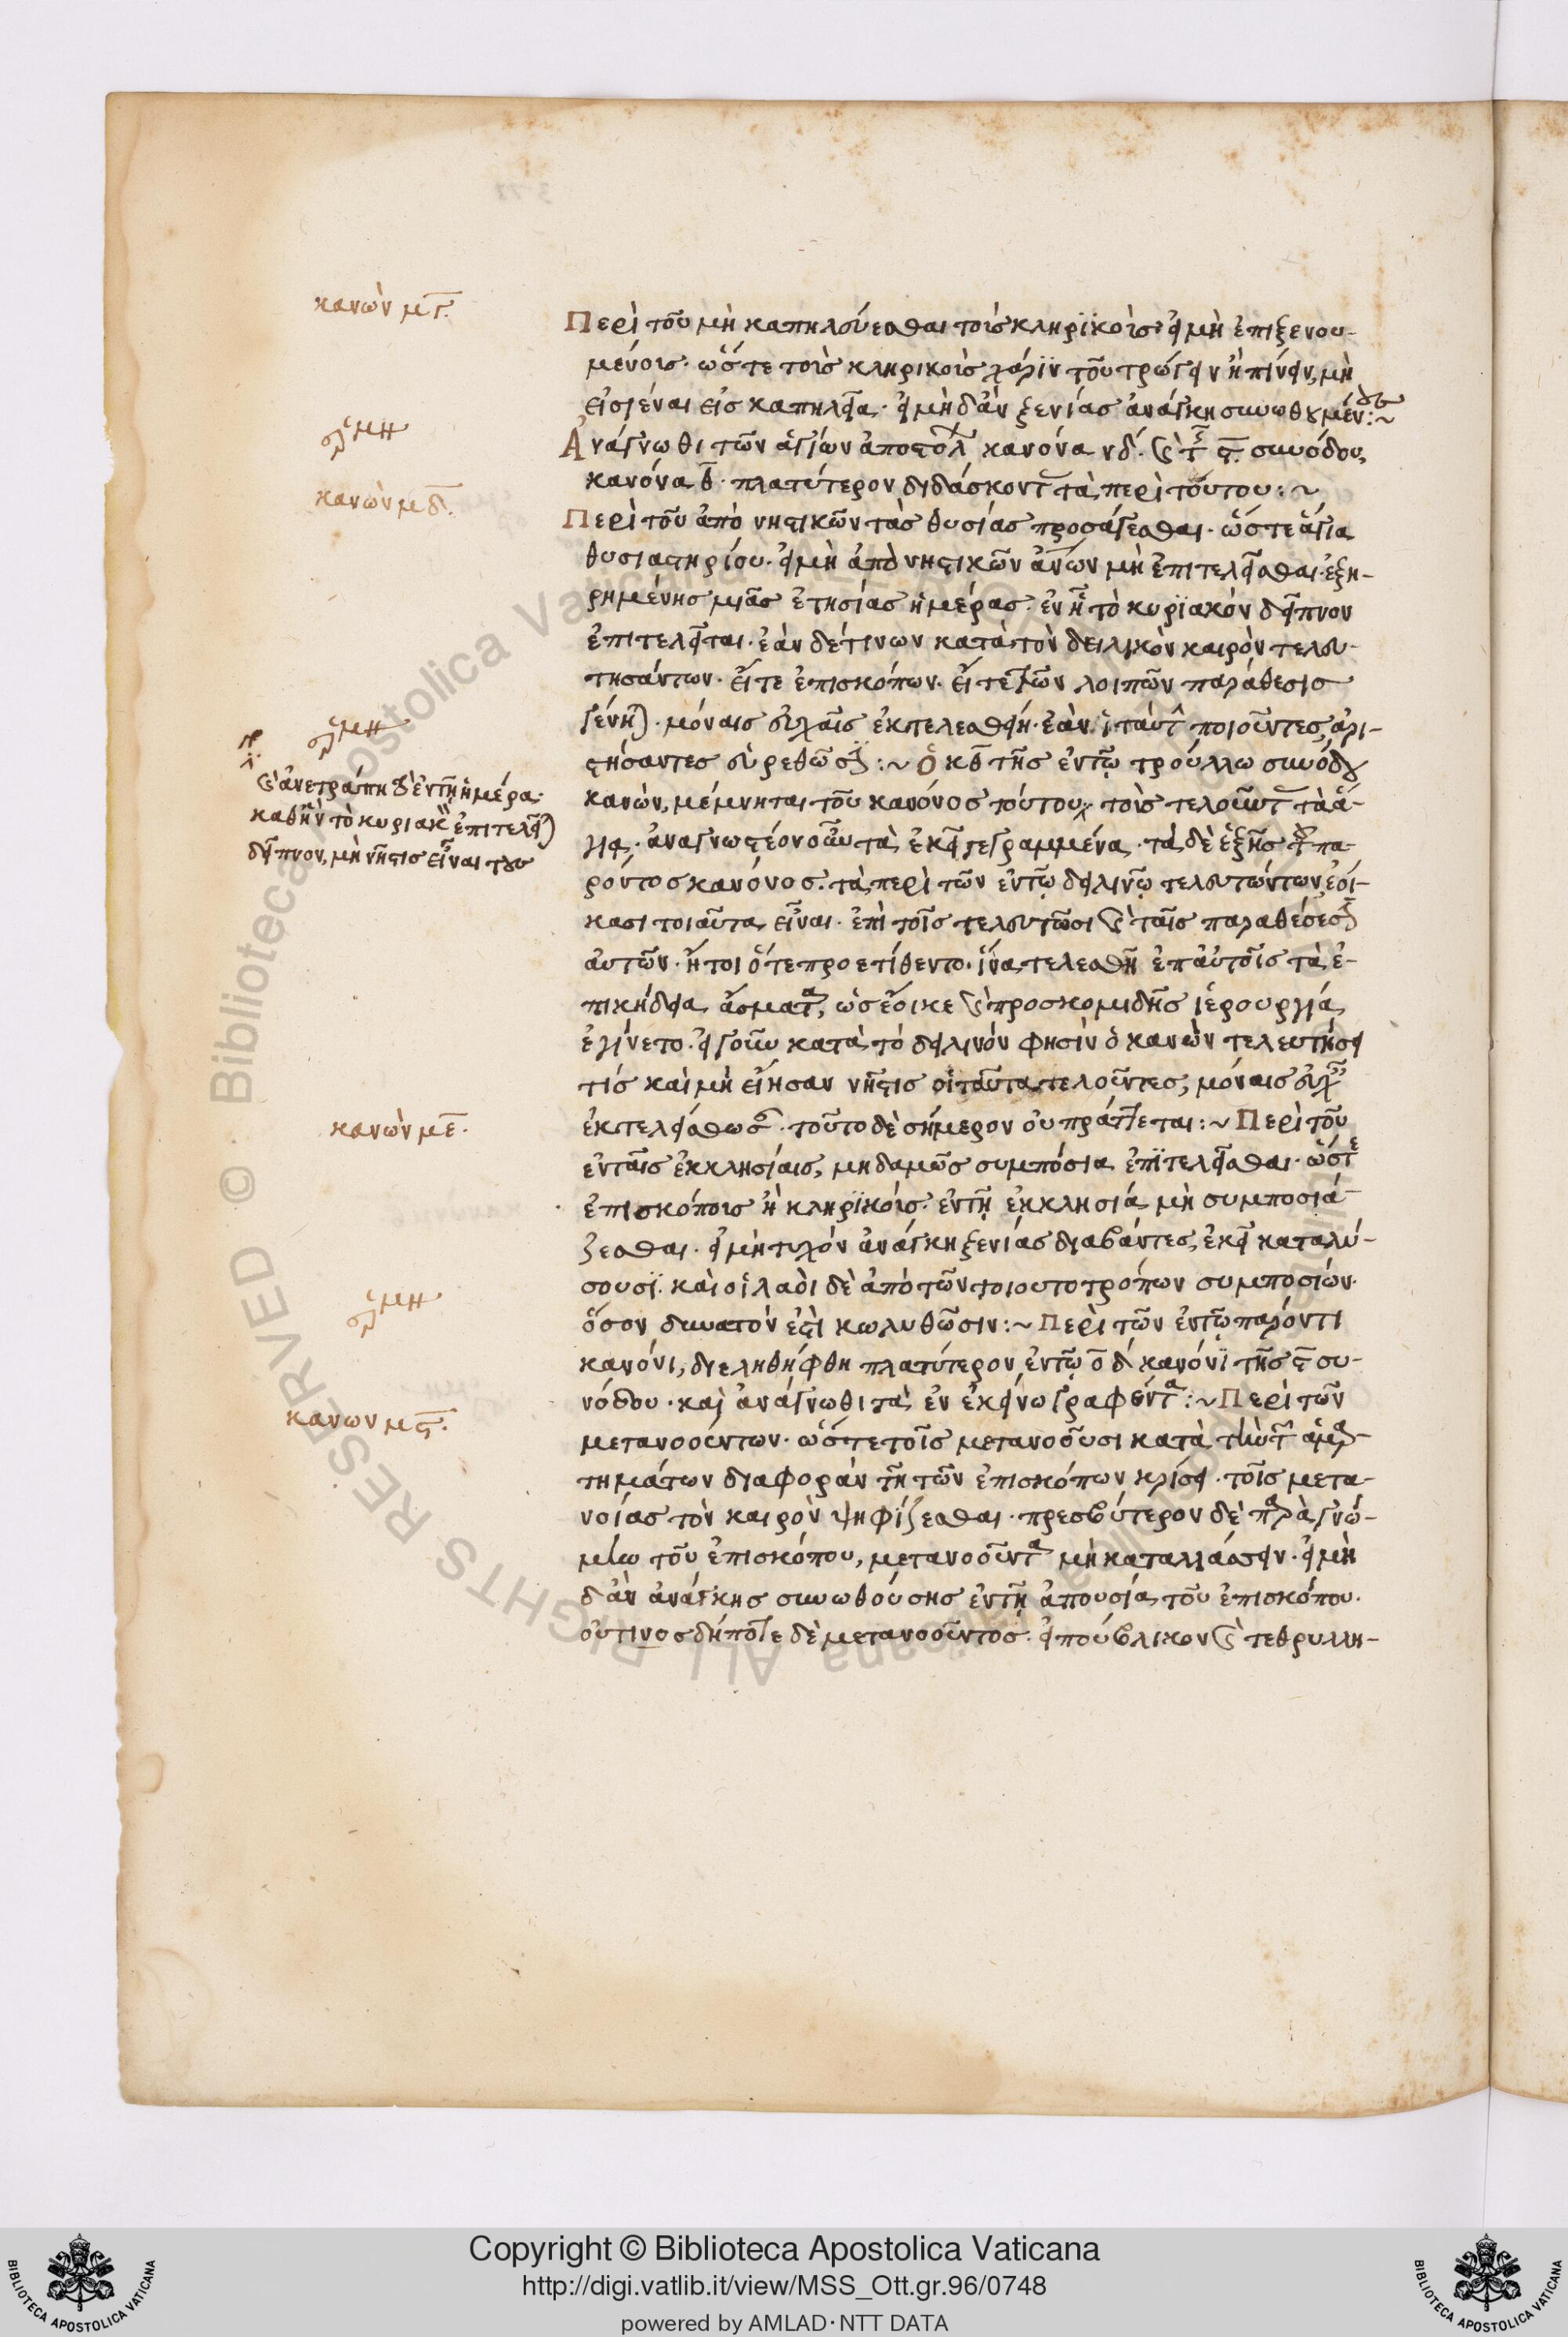 κανὼν μγ.
Περὶ τοῦ μὴ καπηλεύεσθαι τοῖς κληρϊκοῖς· εἰ μὴ ἐπιξενου-
μένοις. ὥστε τοῖς κληρικοῖς χάριν τοῦ τρώγειν ἢ πίνειν, μὴ
εἰσιέναι εἰς καπηλεῖα. εἰ μὴ δἂν ξενίας ἀνάγκῃ συνωθουμένους :~
ἑρμη
Ἀνάγνωθι τῶν ἁγίων ἀποστόλ κανόνα νδ. καὶ τ ϛ συνόδου
κανὼν μδ.
κανόνα θ. πλατύτερον διδάσκοντ τὰ περὶ τούτου :~
Περὶ τοῦ ἀπὸ νηστικῶν τὰς θυσίας προσάγεσθαι. ὥστε ἅγια
θυσιαστηρίου. εἰ μὴ ἀπὸ νηστικῶν ἀνων μὴ ἐπιτελεῖσθαι. ἐξη-
ρημένης μιᾶς ἐτησίας ἡμέρας. ἐν ᾗ τὸ κυρϊακὸν δεῖπνον
ἐπιτελεῖται. ἐὰν δέ τινων κατὰ τὸν δειλινὸν καιρὸν τελευ-
τησάντων. εἴτε ἐπισκόπων. εἴτε τῶν λοιπῶν παράθεσις
γένηται. μόναις εὐχαῖς ἐκτελεσθείη. ἐὰν οἱ ταῦτ ποιοῦντες, ἀρι-
ἑρμη
στήσαντες εὑρεθῶσϊ :~ ὁ κθ τῆς ἐν τῷ τρούλλω συνόδου
καὶ ἀνετράπη τὸ ἐν τῇ ἡμέρα
καθ' ἣν τὸ κυριακὸν ἐπιτελεῖται
δεῖπνον, μὴ νῆστις εἶναι τοὺς
κανὼν, μέμνηται τοῦ κανόνος τούτου, τοῖς τελοῦντ τὰ ἅ-
για. ἀναγνωστέον οὖν τὰ ἐκεῖ γεγραμμένα. τὰ δὲ ἑξῆς τοῦ πα-
ρόντος κανόνος. τὰ περὶ τῶν ἐν τῷ δειλινῷ τελευτώντων, ἐοί-
κασι τοιαῦτα εἶναι. ἐπὶ τοῖς τελευτῶσι καὶ ταῖς παραθέσεσϊ
αὐτῶν. ἤτοι ὅτε προετίθεντο. ἵνα τελεσθῇ ἐπ' αὐτοῖς τὰ ἐ-
πικήδεια ἄσματα, ὡς ἔοικε καὶ προσκομιδῆς ἱερουργία
ἐγίνετο. εἰ γοῦν κατὰ τὸ δειλινόν φησιν ὁ κανὼν τελευτήσει
τίς καὶ μὴ εἴησαν νῆστις οἱ ταῦτα τελοῦντες, μόναις εὐχ
ἐκτελείσθως. τοῦτο δὲ σήμερον οὐ πράττεται :~ Περὶ τοῦ
κανὼν με.
ἐν ταῖς ἐκκλησίαις, μηδαμῶς συμπόσια ἐπϊτελεῖσθαι. ὥστε
ἐπισκόποις ἢ κληρϊκοῖς. ἐν τῇ ἐκκλησίᾳ μὴ συμποσιά-
ζεσθαι. εἰ μὴ τυχὸν ἀνάγκῃ ξενίας διαβάντες, ἐκεῖ καταλύ-
σουσϊ. καὶ οἱ λαοὶ δὲ ἀπὸ τῶν τοιουτοτρόπων συμποσίων.
ἑρμη
ὅσον δυνατόν ἐστι κωλυθῶσιν :~ Περὶ τῶν ἐν τῷ παρόντι
κανόνι, διεληθήφθη πλατύτερον ἐν τῷ οδ κανόνϊ τῆς ϛ συ-
νόδου. καὶ ἀνάγνωθι τὰ ἐν ἐκείνω γραφέντα :~ Περὶ τῶν
κανων μϛ.
μετανοούντων. ὥστε τοῖς μετανοοῦσι κατὰ τὴν τ ἁμαρ-
τημάτων διαφορὰν τῇ τῶν ἐπισκόπων κρίσει. τοῖς μετα-
νοίας τὸν καιρὸν ψηφίζεσθαι. πρεσβύτερον δὲ παρὰ γνώ-
μην τοῦ ἐπισκόπου, μετανοοῦντα μὴ καταλλάσσειν. εἰ μὴ
δἂν ἀνάγκης συνωθούσης ἐν τῇ ἀπουσίᾳ τοῦ ἐπισκόπου.
οὑτινος δήποτε δὲ μετανοοῦντος. εἰ πούβλικον καὶ τεθρυλλη-
Copyright © Biblioteca Apostolica Vaticana
http://digi.vatlib.it/view/MSS_Ott.gr.96/0748
powered by AMLAD·NTT DATA
BIBLIOTECA APOSTOLICA VATICANA
BIBLIOTECA APOSTOLICA VATICANA